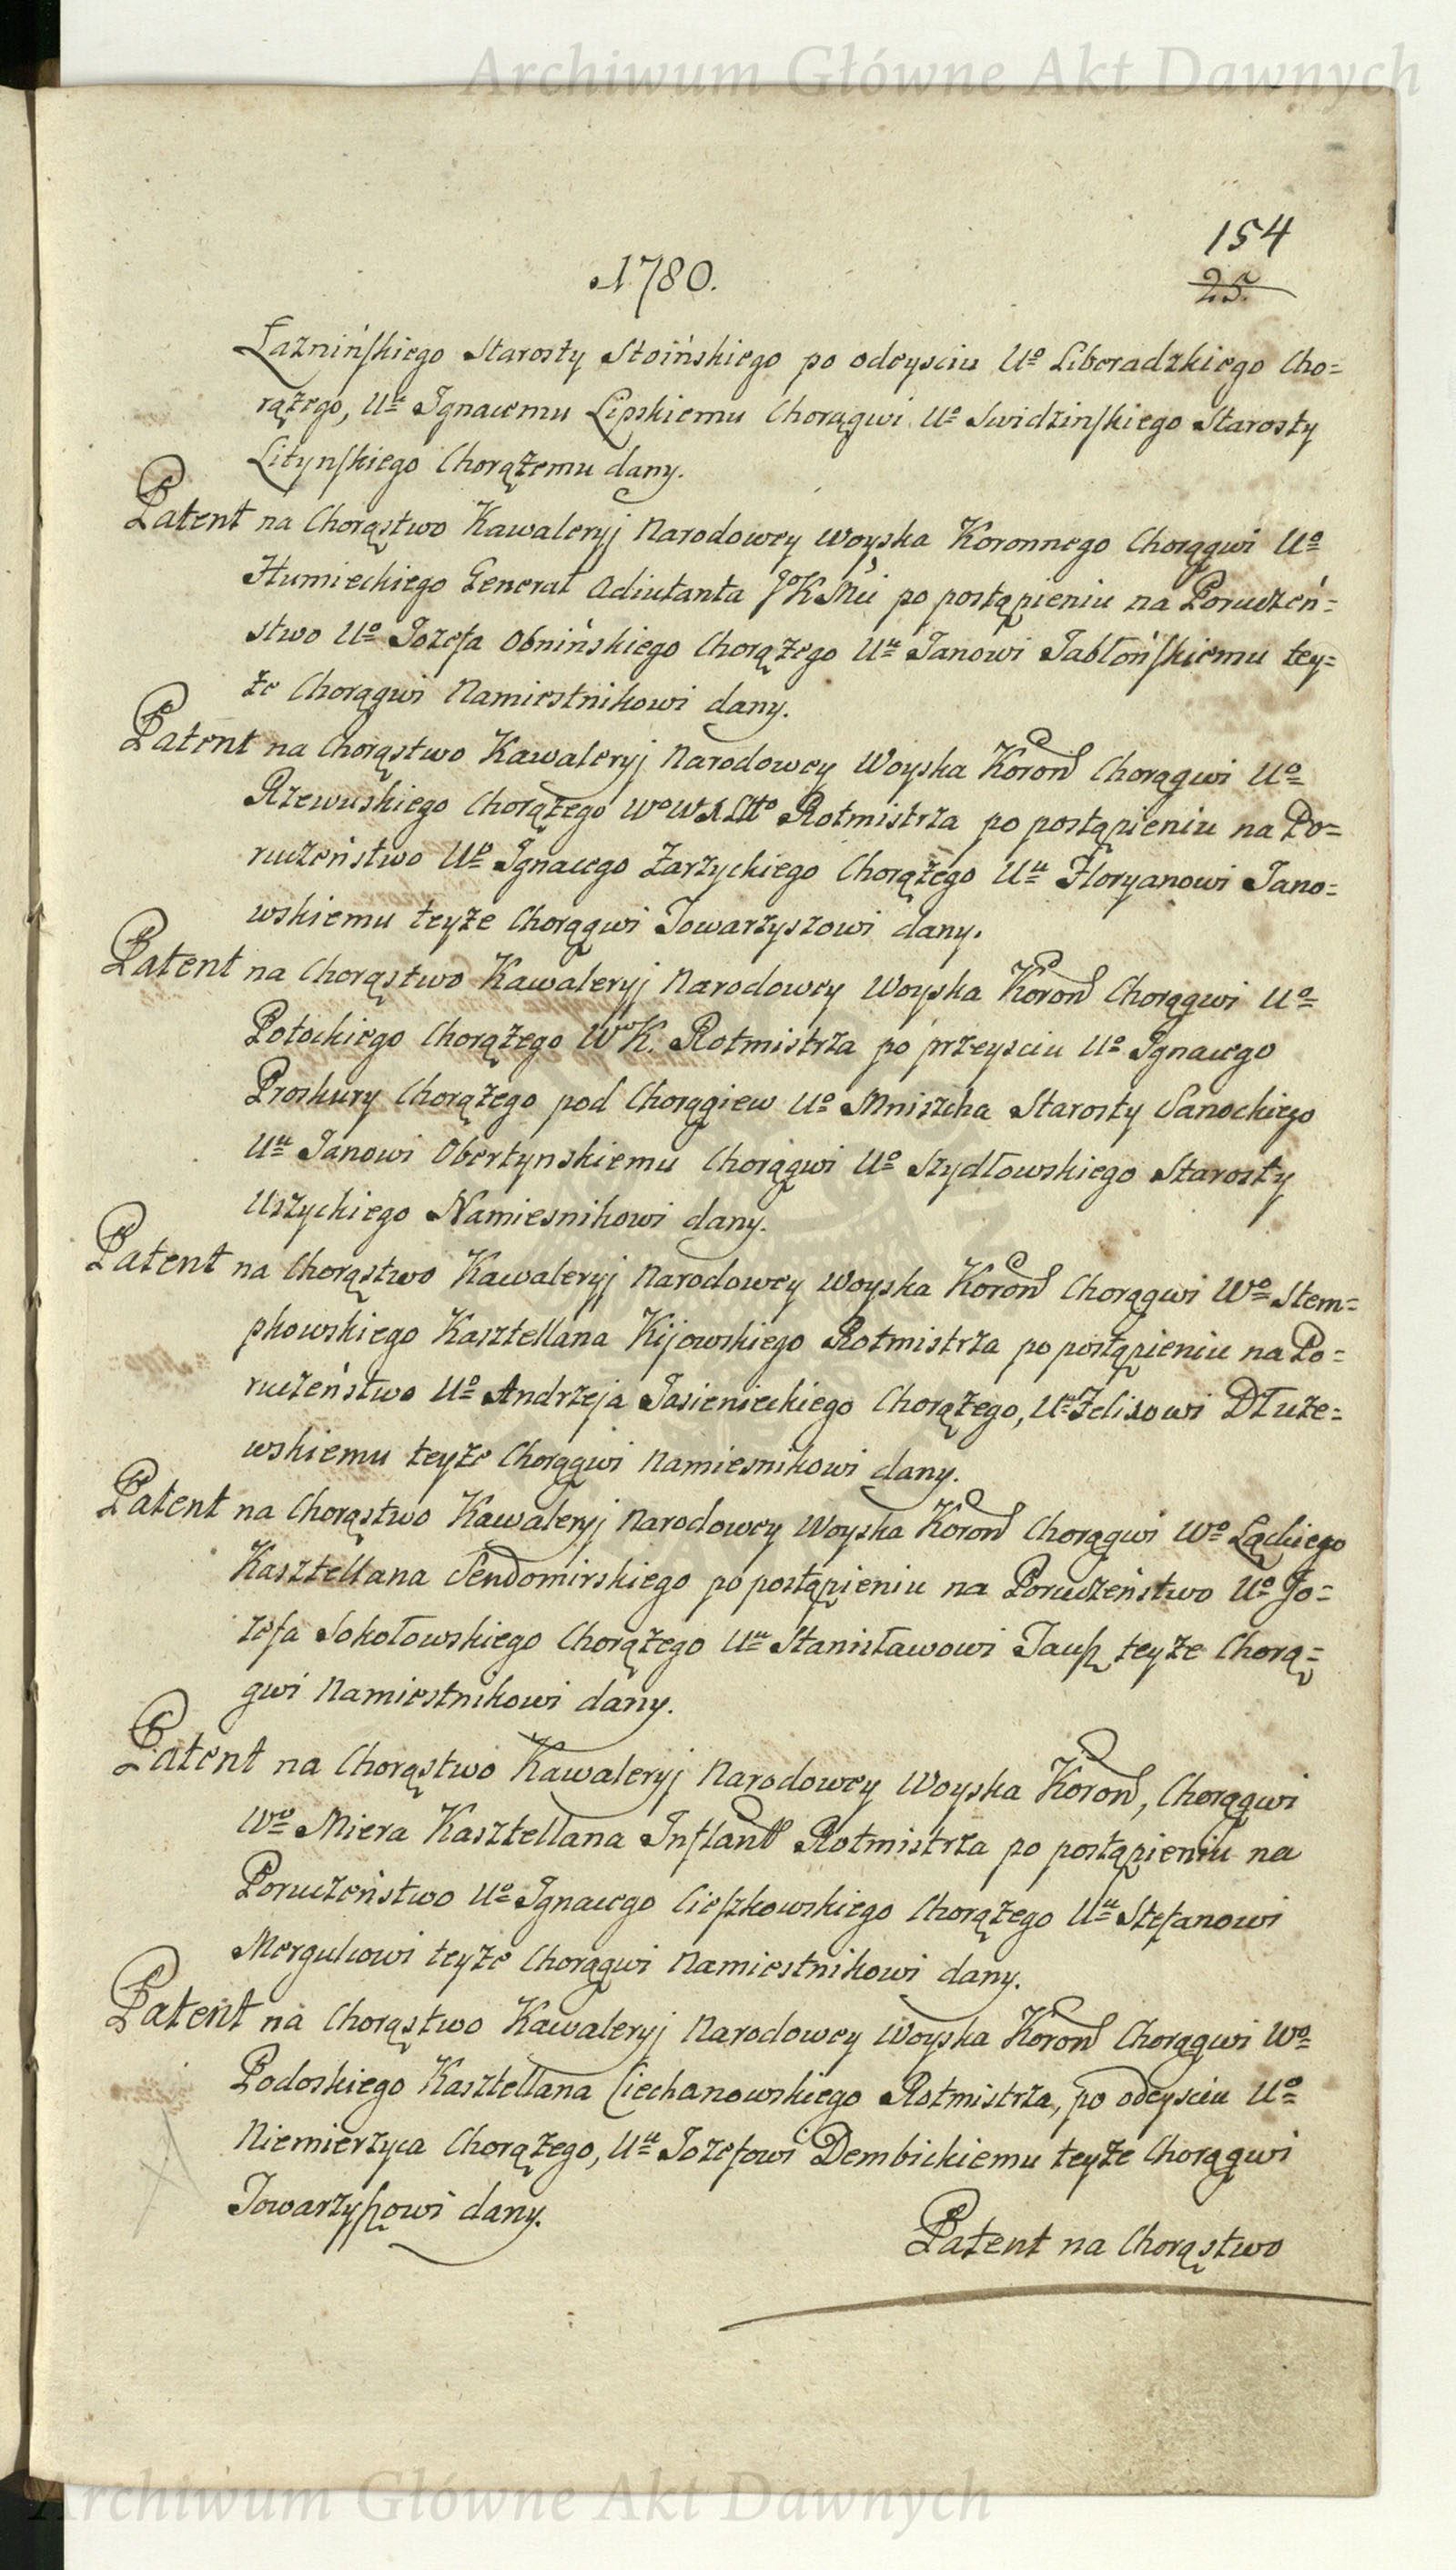 Archiwum Główne Akt Dawnych
154
25.
1780.
Łaznińskiego Starosty Stoińskiego po odeysciu Uo Liberadzkiego Cho=
rążego, Uu Ignacemu Lipskiemu Chorągwi Uo Swidzinskiego Starosty
Litynskiego Chorążemu dany.
Patent na Chorąstwo Kawaleryj Narodowey Woyska Koronnego Chorągwi Uo
Humieckiego Generał Adiutanta JoKMci po postąpieniu na Poruczeń=
stwo Uo Jozefa Obnińskiego Chorążego Uu Janowi Jabłońskiemu tey=
że Chorągwi Namiestnikowi dany.
Patent na Chorąstwo Kawaleryj Narodowey Woyska Koron Chorągwi Uo
Rzewuskiego Chorążego WoWXLitto Rotmistrza po postąpieniu na Po=
ruczeństwo Uo Ignacego Zarzyckiego Chorążego Uu Floryanowi Jano=
wskiemu teyże Chorągwi Towarzyszowi dany.
Patent na Chorąstwo Kawaleryj Narodowey Woyska Koron Chorągwi Uo
Potockiego Chorążego WoK. Rotmistrza po przeysciu Uo Ignacego
Proskury Chorążego pod Chorągiew Uo Mniszcha Starosty Sanockiego
Uu Janowi Obertynskiemu Chorągwi Uo Szydłowskiego Starosty
Uszyckiego Namiesnikowi dany.
Patent na Chorąstwo Kawaleryj Narodowey Woyska Koron Chorągwi Wo Stem=
pkowskiego Kasztellana Kijowskiego Rotmistrza po postąpieniu na Po=
ruczeństwo Uo Andrzeja Jasienieckiego Chorążego, Uu Felixowi Dłuże=
wskiemu teyże Chorągwi Namiesnikowi dany.
Patent na Chorąstwo Kawaleryj Narodowey Woyska Koron Chorągwi Wo Łąckiego
Kasztellana Sendomirskiego po postąpieniu na Poruczeństwo Uo Jo=
zefa Sokołowskiego Chorążego Uu Stanisławowi Jausz teyże Chorą=
gwi Namiestnikowi dany.
Patent na Chorąstwo Kawaleryj Narodowey Woyska Koron, Chorągwi
Wo Miera Kasztellana Inflant Rotmistrza po postąpieniu na
Poruczeństwo Uo Ignacego Cieszkowskiego Chorążego Uu Stefanowi
Mergulcowi teyże Chorągwi Namiestnikowi dany.
Patent na Chorąstwo Kawaleryj Narodowey Woyska Koron Chorągwi Wo
Podoskiego Kasztellana Ciechanowskiego Rotmistrza, po odeysciu Uo
Niemierzyca Chorążego, Uu Jozefowi Dembickiemu teyże Chorągwi
Towarzyszowi dany.
Patent na Chorąstwo
Archiwum Główne Akt Dawnych